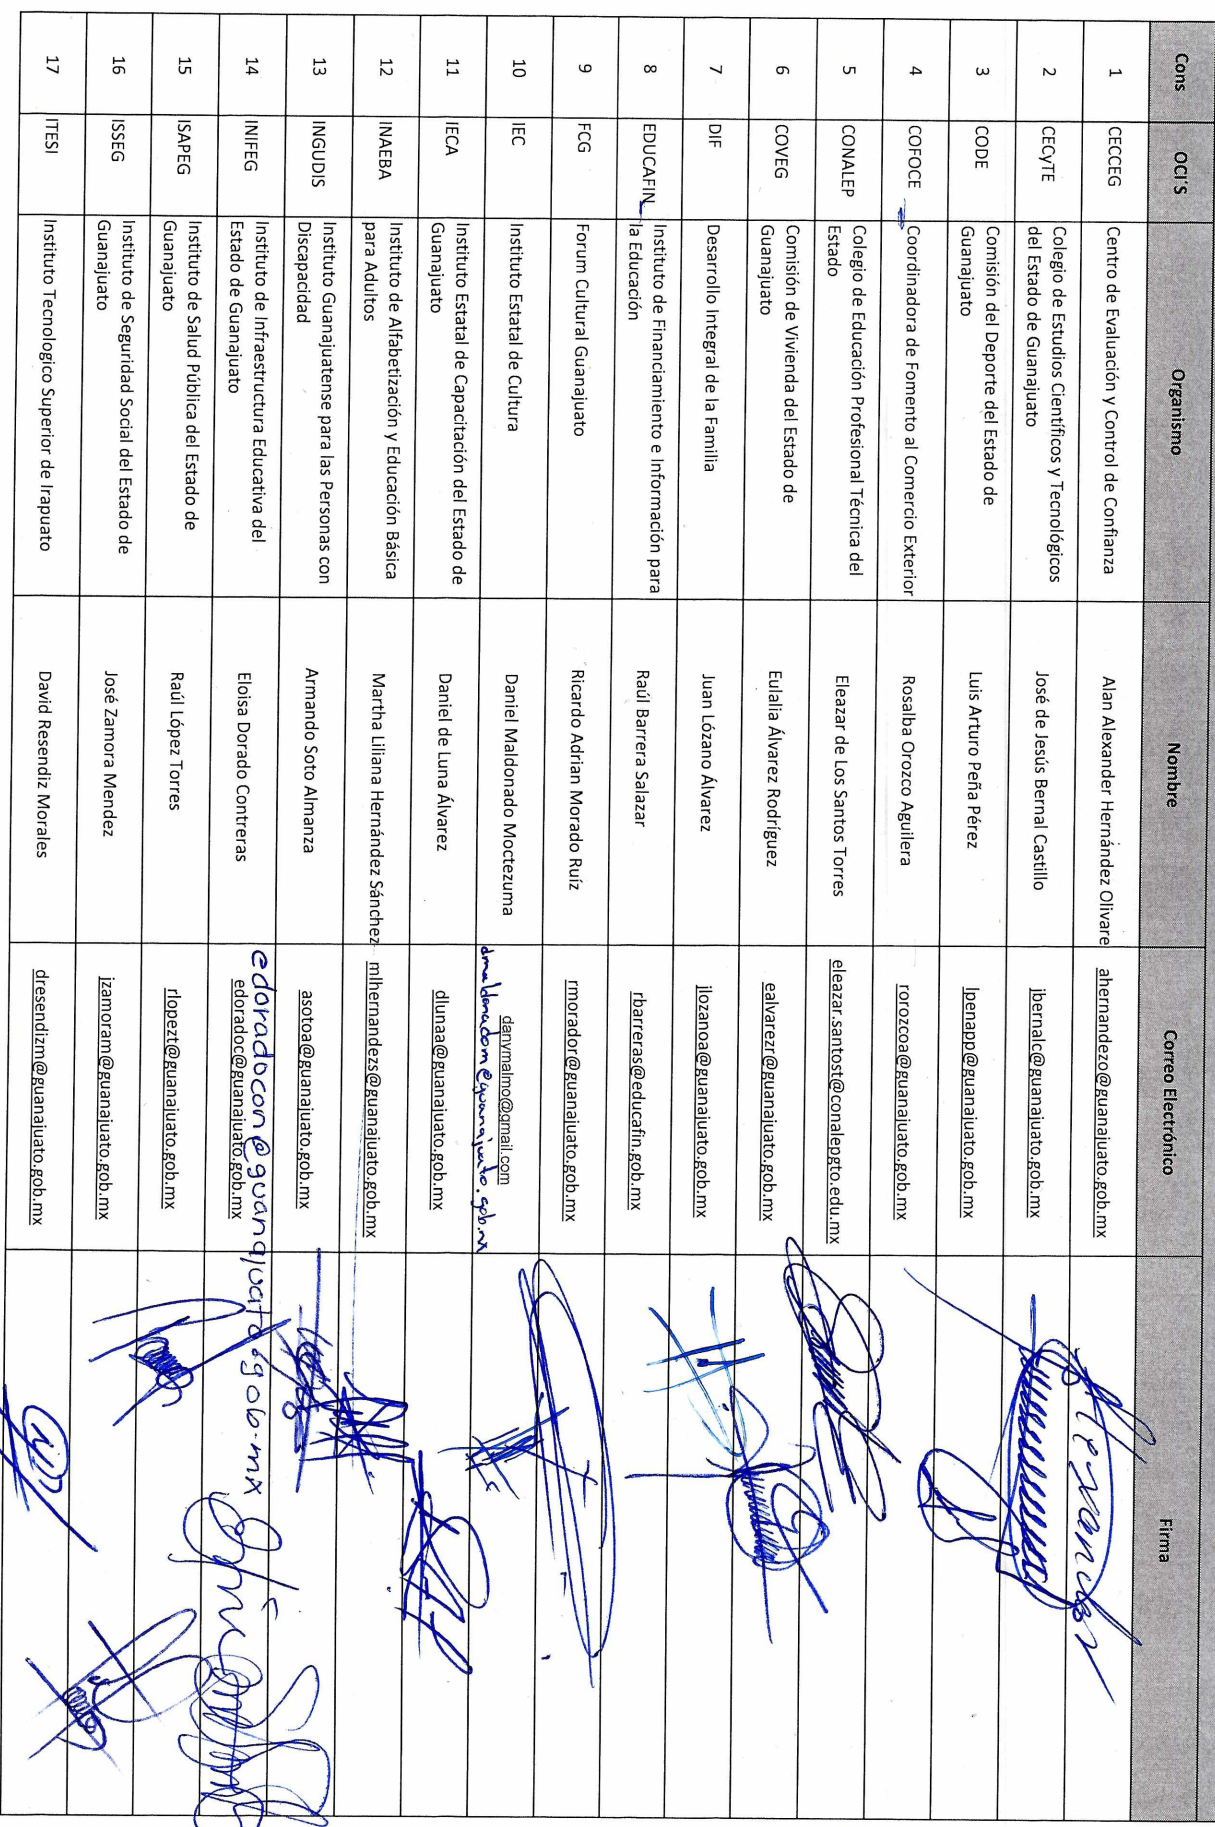 Cons OCI´S Organismo Nombre Correo Electrónico Firma
1 CECCEG Centro de Evaluación y Control de Confianza Alan Alexander Hernández Olivare ahernandezo@guanajuato.gob.mx
2 CECyTE Colegio de Estudios Científicos y Tecnológicos
del Estado de Guanajuato José de Jesús Bernal Castillo jbernalc@guanajuato.gob.mx
3 CODE Comisión del Deporte del Estado de
Guanajuato Luis Arturo Peña Pérez lpenapp@guanajuato.gob.mx
4 COFOCE Coordinadora de Fomento al Comercio Exterior Rosalba Orozco Aguilera rorozcoa@guanajuato.gob.mx
5 CONALEP Colegio de Educación Profesional Técnica del
Estado Eleazar de Los Santos Torres eleazar.santost@conalepgto.edu.mx
6 COVEG Comisión de Vivienda del Estado de
Guanajuato Eulalia Álvarez Rodríguez ealvarezr@guanajuato.gob.mx
7 DIF Desarrollo Integral de la Familia Juan Lózano Álvarez jlozanoa@guanajuato.gob.mx
8 EDUCAFIN Instituto de Financiamiento e Información para
la Educación Raúl Barrera Salazar rbarreras@educafin.gob.mx
9 FCG Forum Cultural Guanajuato Ricardo Adrian Morado Ruíz rmorador@guanajuato.gob.mx
10 IEC Instituto Estatal de Cultura Daniel Maldonado Moctezuma danymalmo@gmail.com
dmaldonadom@guanajuato.gob.mx
11 IECA Instituto Estatal de Capacitación del Estado de
Guanajuato Daniel de Luna Álvarez dlunaa@guanajuato.gob.mx
12 INAEBA Instituto de Alfabetización y Educación Básica
para Adultos Martha Liliana Hernández Sánchez mlhernandezs@guanajuato.gob.mx
13 INGUDIS Instituto Guanajuatense para las Personas con
Discapacidad Armando Soto Almanza asotoa@guanajuato.gob.mx
edoradocon@guanajuato.gob.mx
14 INIFEG Instituto de Infraestructura Educativa del
Estado de Guanajuato Eloisa Dorado Contreras edoradoc@guanajuato.gob.mx
15 ISAPEG Instituto de Salud Pública del Estado de
Guanajuato Raúl López Torres rlopezt@guanajuato.gob.mx
16 ISSEG Instituto de Seguridad Social del Estado de
Guanajuato José Zamora Mendez jzamoram@guanajuato.gob.mx
17 ITESI Instituto Tecnologico Superior de Irapuato David Resendiz Morales dresendizm@guanajuato.gob.mx